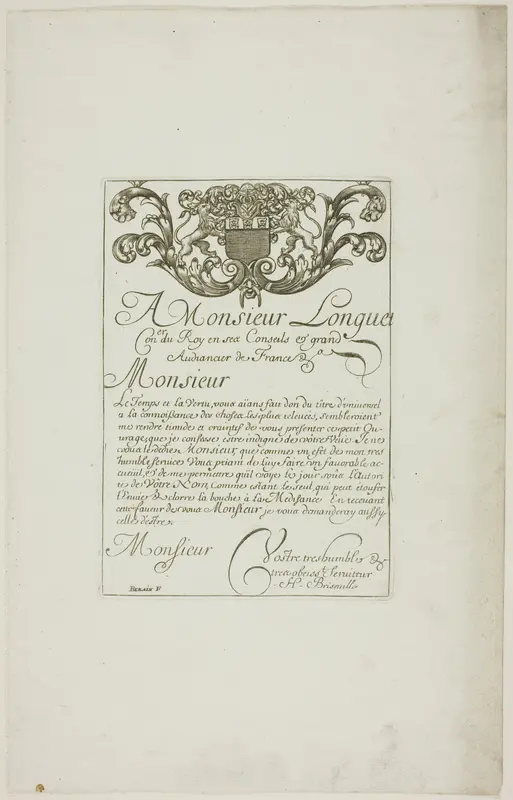 A Monsieur Longuet
Con.er du Roy en ses Conseils et grand
Audiancier de France &c.
Monsieur
Le Temps et la Vertu, vous aïans fait don du titre d'vniuersel
a la connoissance des choses les plus releueés, sembleroient
me rendre timide et craintif de vous presenter ce petit Ou-
urage, que je confesse estre indigne de vôtre Veüe. Je ne
vous le dedie Monsieur, que comme vn efét de mon tres
humble seruice. Vous priant de luy faire vn fauorable ac-
cueil, et de me permettre qu'il voye le jour sous l'Autori-
té de Vôtre Nom, comme estant le seul qui peut étoufer
l'Enuie & clorre la bouche à la Medisance. En receuant
cette faueur de vous Monsieur je vous demanderay aussy
celle d'estre.
Monsieur
Vostre tres humble &
tres obeiss.t Seruiteur
H. Brisuille
BERAIN F